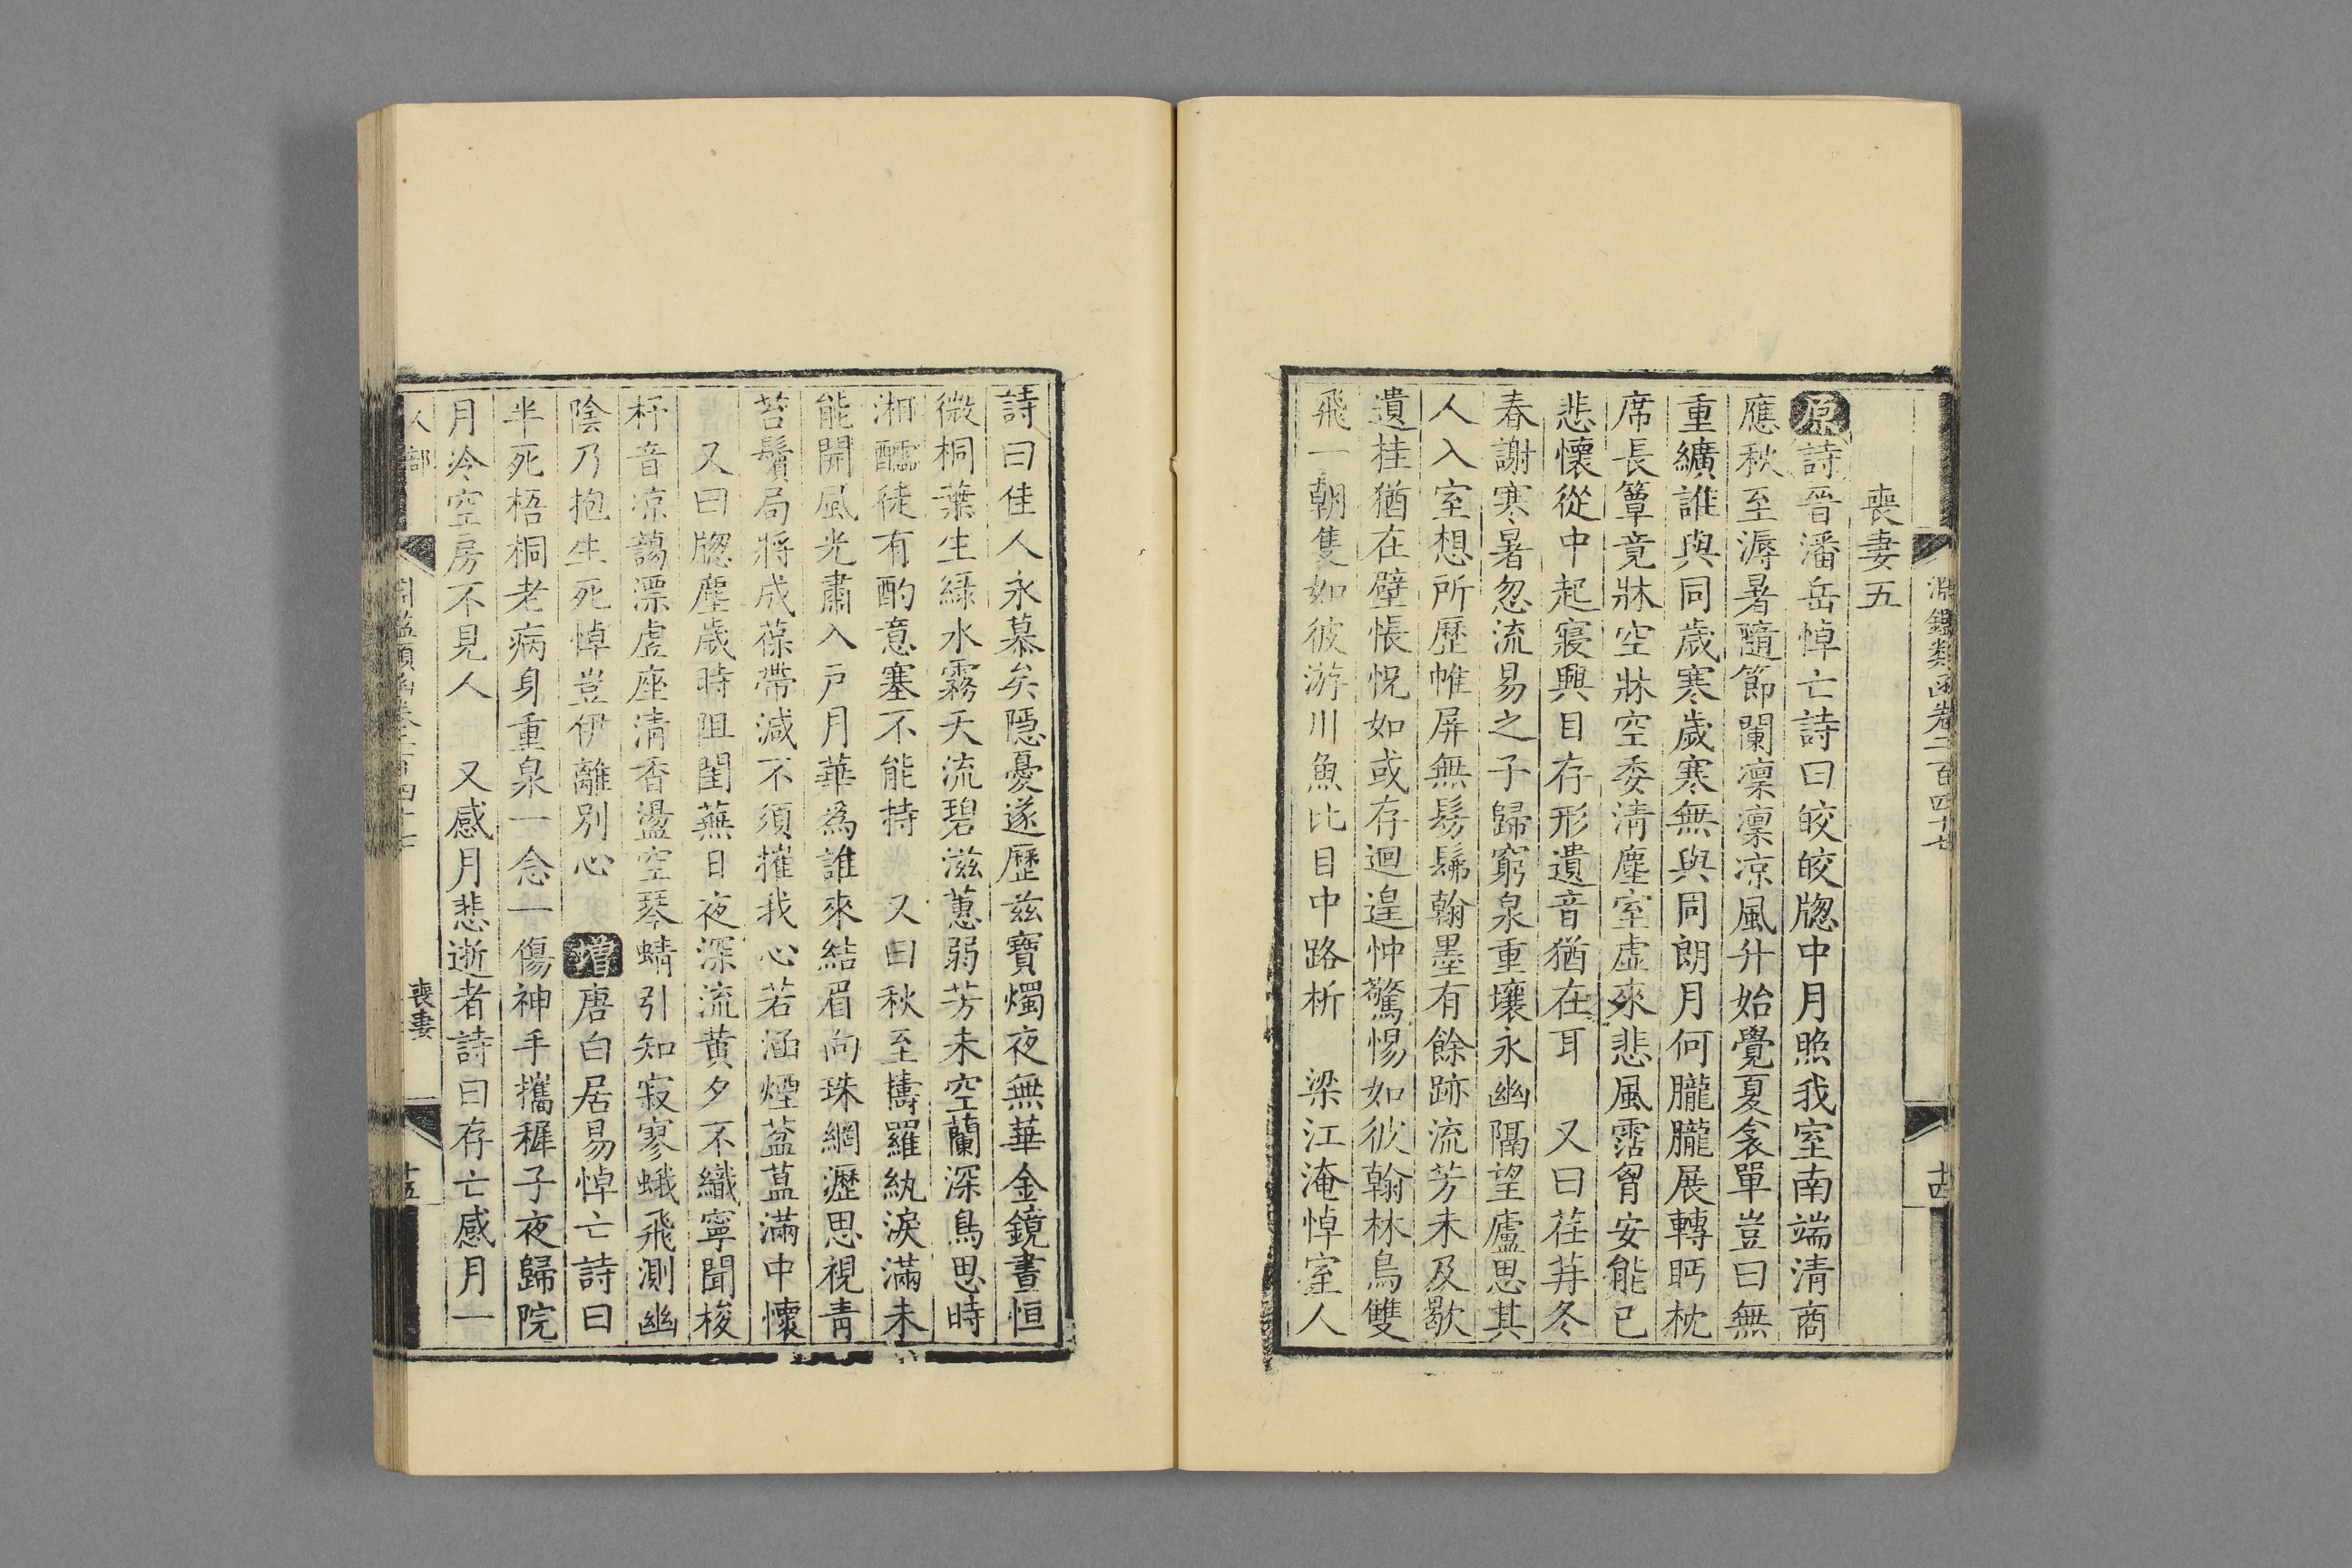 淵鑑類函卷二百四十七
十四
喪妻五
原詩晉潘岳悼亡詩曰皎皎牕中月照我室南端清商
應秋至溽暑隨節闌凜凜凉風升始覺夏衾單豈曰無
重纊誰與同歲寒歲寒無與同朗月何朧朧展轉眄枕
席長簟竟牀空牀空委淸塵室虛來悲風霑胷安能已
悲懷從中起寢興目存形遺音猶在耳　又曰荏苒冬
春謝寒暑忽流易之子歸窮泉重壤永幽隔望廬思其
人入室想所歷帷屏無髣髴翰墨有餘跡流芳未及歇
遺挂猶在壁悵怳如或存迴遑忡驚惕如彼翰林鳥雙
飛一朝隻如彼游川魚比目中路析　梁江淹悼室人
詩曰佳人永慕矣隱憂遂歷茲寶燭夜無華金鏡晝恒
微桐葉生綠水霧天流碧滋蕙弱芳未空蘭深鳥思時
湘醽徒有酌意塞不能持　又曰秋至擣羅紈淚滿未
能開風光肅入戶月華為誰來結眉向珠網瀝思視青
苔鬢局將成葆帶減不須摧我心若涵煙葢蒀滿中懷
　又曰牕塵歲時阻閨蕪日夜深流黃夕不織寧聞梭
杼音凉藹漂虛座清香盪空琴蜻引知寂寥蛾飛測幽
陰乃抱生死悼豈伊離別心　增唐白居易悼亡詩曰
半死梧桐老病身重泉一念一傷神手攜稚子夜歸院
月冷空房不見人　又感月悲逝者詩曰存亡感月一
人部
喪妻
十五